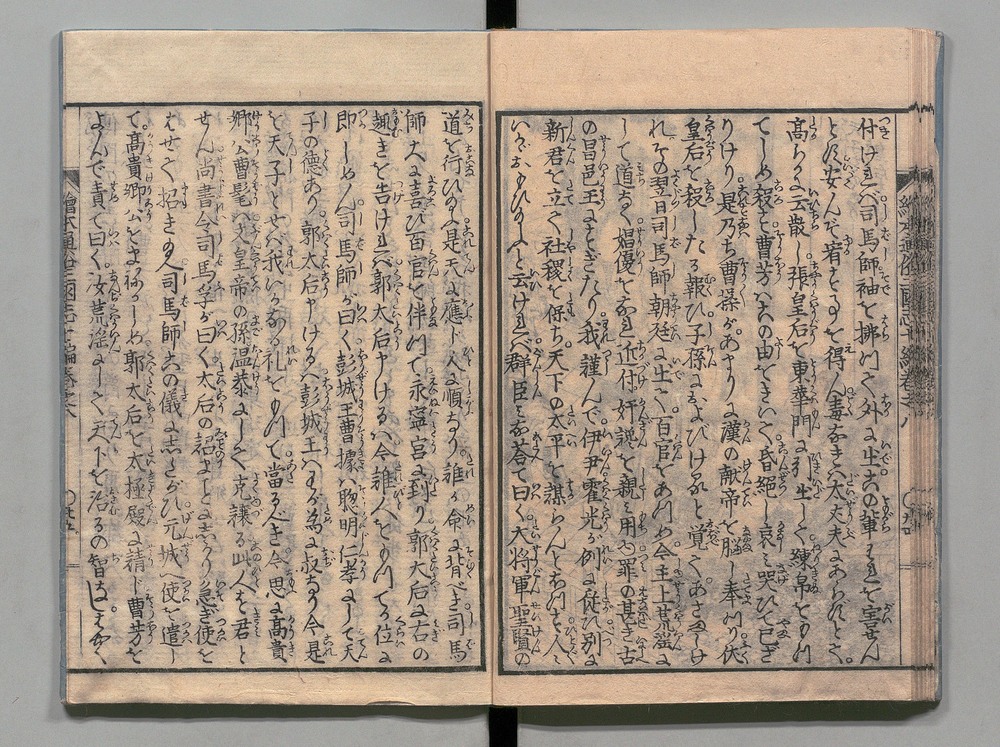 付けれバ司馬師袖を拂つて外に出右の輩われを害せん
とに安んぞ着することを得ん毒なき人大丈夫にあられとて
高らかに云散し張皇后を東華門に引出して練帛をもつ
てしめ殺す曹芳右の由をきいて昏絶し哀み哭ひて已ざ
りけり是乃ち曹操があまりに漢の献帝を脳し奉つり伏
皇后を殺したる報ひ子孫におよびけると覚てあさましけ
れその翌日司馬師朝廷に出て百官をあつめ今主上荒淫に
して道なく娼優をなれ近付奸讒を親み用ゆ罪の甚き古
の昌邑王にもすぎたり我謹んで伊尹霍光が例に従ひ別に
新君を立て社稷を保ち天下の太平を謀らんとおもふ人々
いかゞおもひ玉ふと云けれバ群臣みな荅て曰く大将軍聖賢の
道を行ひ玉ふ是天に應じ人に順なり誰か命に背べき司馬
師大に喜び百官を伴つて永寧宮に到り郭大后に右の
趣きを告けれバ郭大后ヤけるハ今誰人をもつてか位に
即しめん司馬師が曰く彭城王曹據ハ聰明仁孝にして天
子の德あり郭太后ヤけるハ彭城王ハわが為に叔なり今是
を天子とせバ我いかなる礼をもつて當るべき今思ふに高貴
郷公曹髦ハ文皇帝の孫温恭にしてよく克讓る此人を君と
せん尚書令司馬孚が曰く太后の詔まことに然なり急ぎ使を
はせて招き玉へ司馬師右の儀にしたがひ元城へ使を遣し
て高貴郷公をまねかしめ郭太后を太極殿に請じ曹芳を
よんで責て曰く汝荒淫にして天下を治るの智なし
繪本通俗三國志十編巻之八